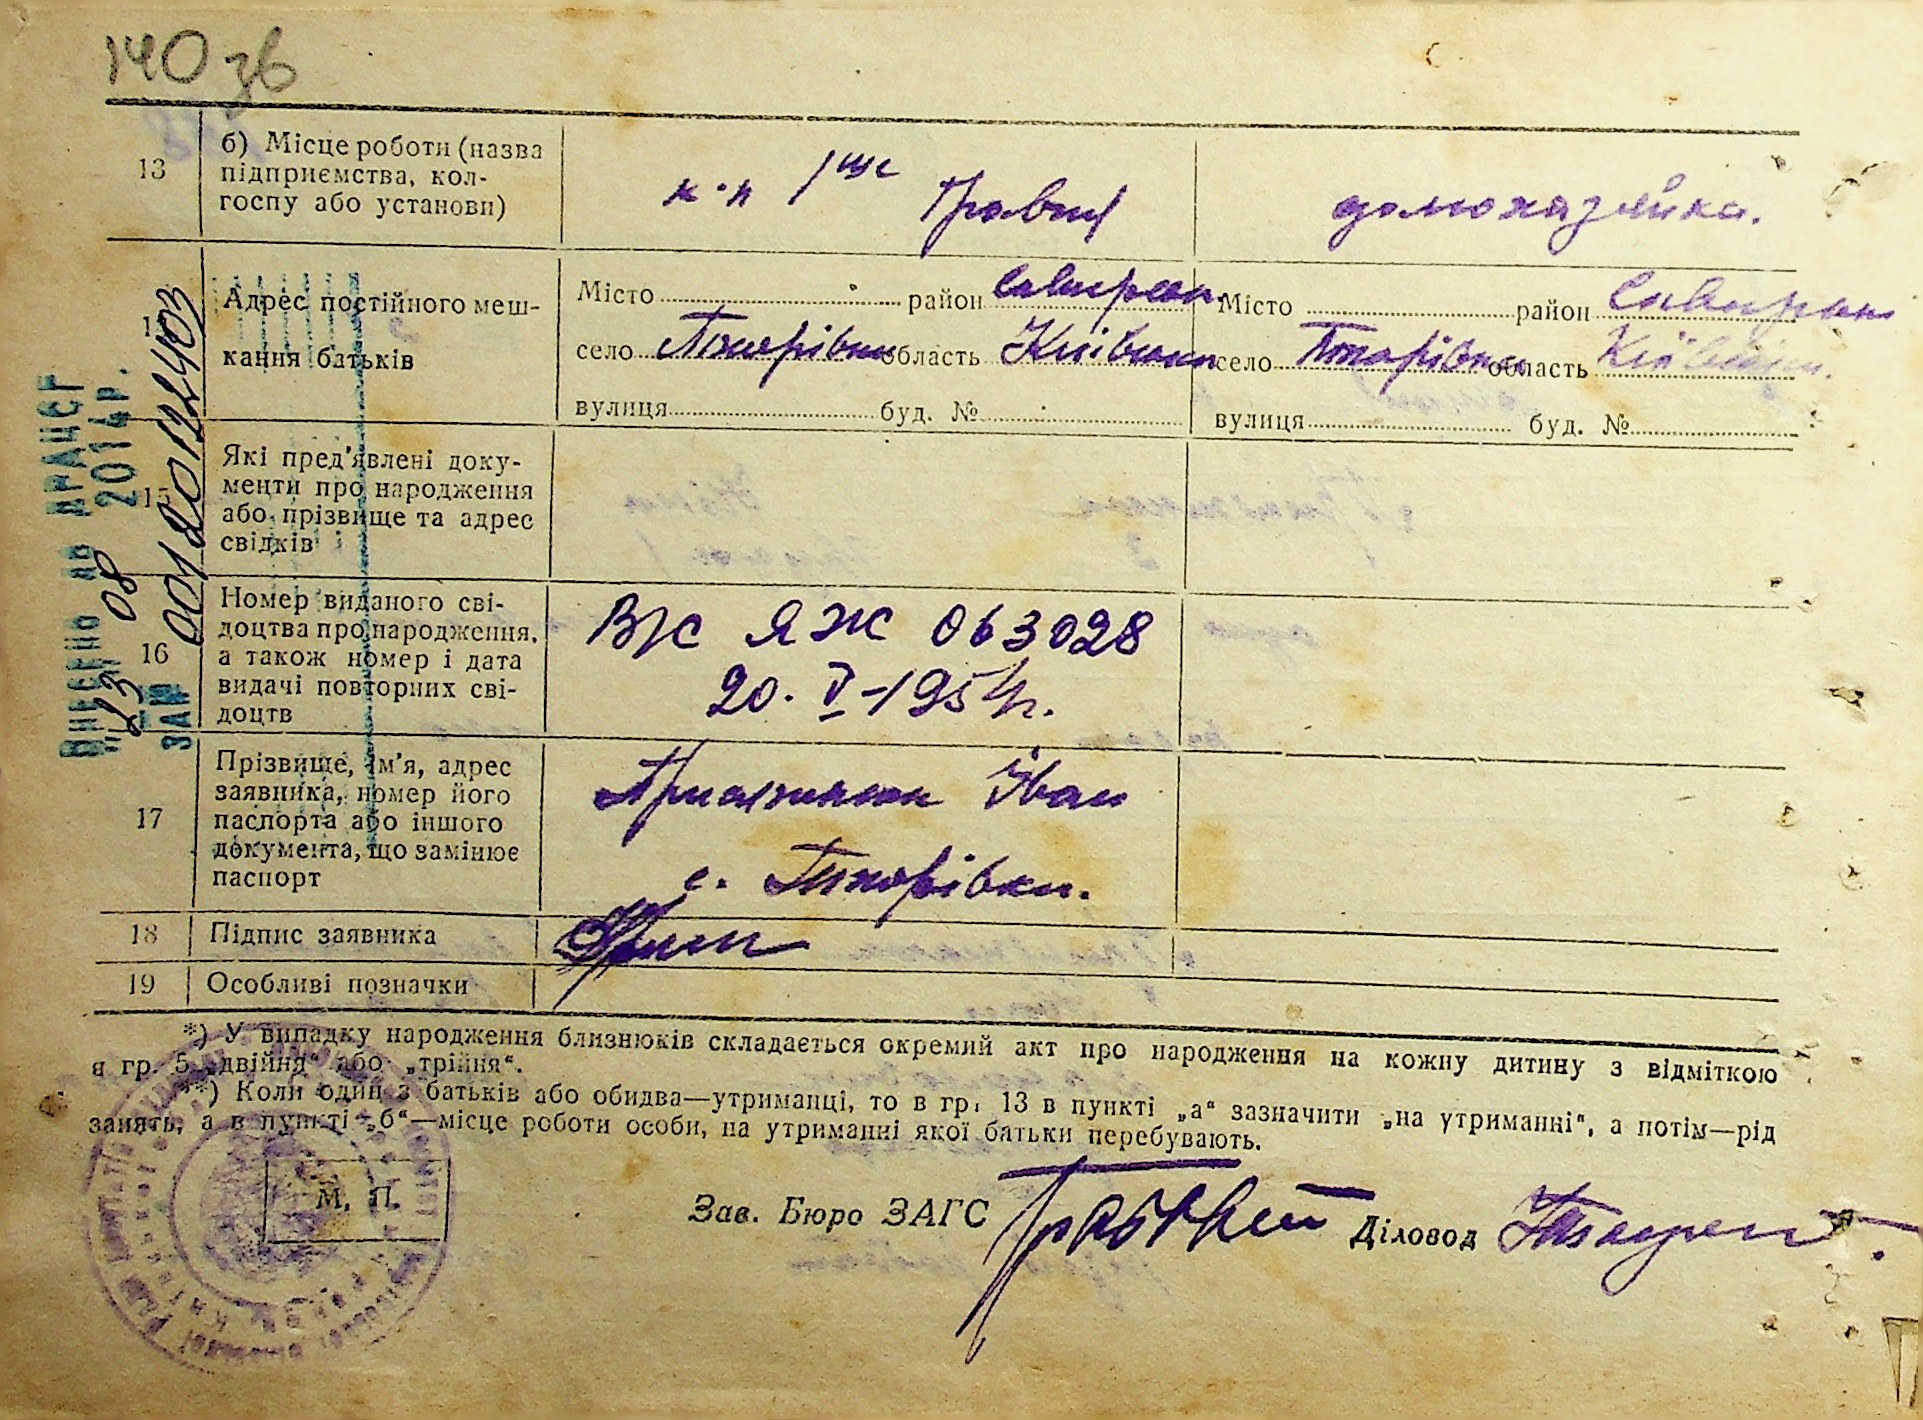 140 зв
13
б) Місце роботи (назва
підприємства, кол-
госпу або установи)
к-п 1ше Травня
домохазяйка.
Адрес постійного меш-
кання батьків
Місто район
село область Київська
вулиця буд. №
Місто район
село область Київська
вулиця буд. №
15
Які пред'явлені доку-
менти про народження
або прізвище та адрес
свідків
16
Номер виданого сві-
доцтва про народження,
а також номер і дата
видачі повторних сві-
доцтв
ЯЖ 063028
20. V-1954р.
17
Прізвище, ім'я, адрес
заявника, номер його
паспорта або іншого
документа, що замінює
паспорт
Іван
с.
18
Підпис заявника
19
Особливі позначки
*) У випадку народження близнюків складається окремий акт про народження на кожну дитину з відміткою
в гр. 5 „двійня“ або „трійня“.
**) Коли один з батьків або обидва—утриманці, то в гр. 13 в пункті „а“ зазначити „на утриманні“, а потім—рід
занять, а в пункті „б“—місце роботи особи, на утриманні якої батьки перебувають.
М. П.
Зав. Бюро ЗАГС
Діловод
Внесено до ДРАЦСГ
"23" 08 2014р.
ЗА № 00120122403